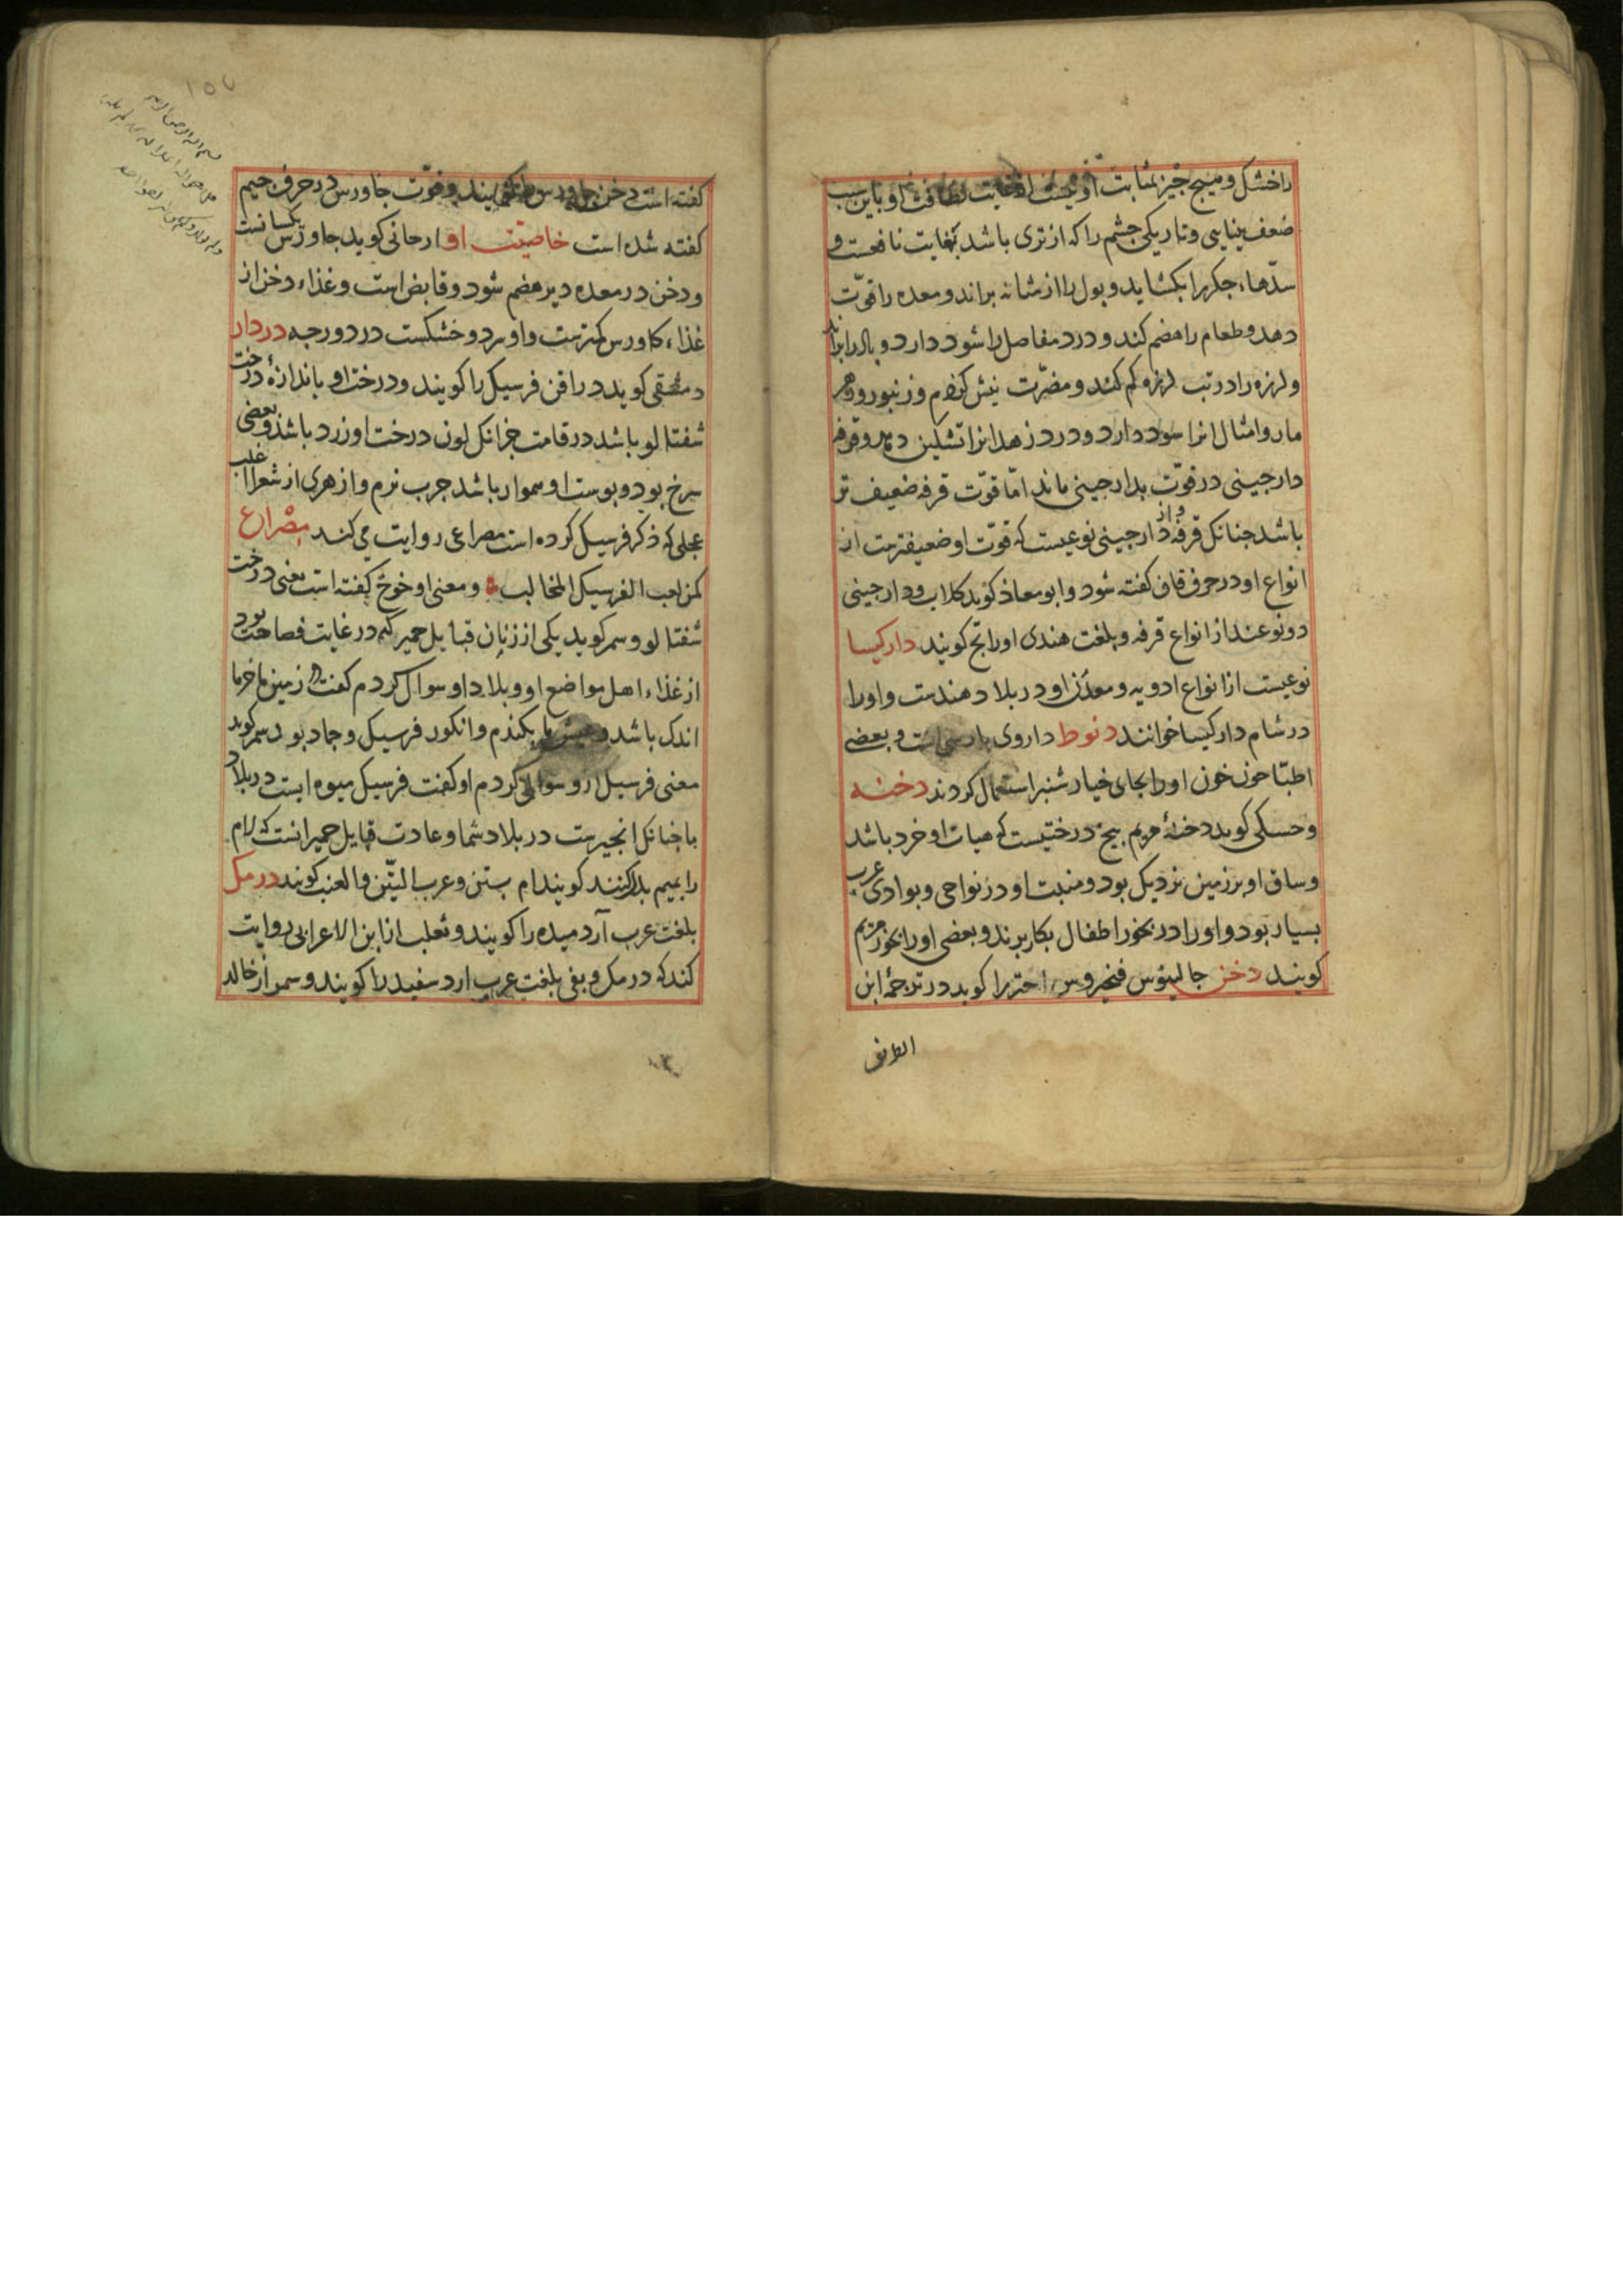 را خشک و هیچ چیز بمثابت او نیست از غایت لطافت او باین سبب
ضعف بینایی و تاریکی چشم را که از تری باشد بغایت نافعست و
سدّهاء جکر را بکشاید و بول را از مثانه براند و معده را قوّت
دهد و طعام را هضم کند و درد مفاصل را سود دارد و
و لرزه را در تب لرزه کم کند و مضرّت نیش کژدم و زنبور و
مار و امثال انرا سود دارد و درد زهد انرا تسکین دهد و قرفه
دارجینی در قوّت بدارجینی ماند امّا قوّت قرفه ضعیف تر
باشد جنانک قرفه دارجینی نوعیست که قوّت او ضعیفترست از
انواع او در حرف قاف کفته شود و ابو معاذ کوید کلاب و دارجینی
دو نوعند از انواع قرفه و بلغت هندی او را تج کویند دارکیسا
نوعیست از انواع ادویه و معدن او در بلاد هندست و او را
در شام دارکیسا خوانند دنوط داروی پارسی است و بعضی
اطبّا جون خون او را بجای خیار شنبر استعمال کردند دخنه
و حسکی کوید دخنهٔ مریم بیخ درختیست که هیات او خرد باشد
و ساق او بر زمین نزدیک بود و منبت او در نواحی و بوادی عرب
بسیار بود و او را در بخور اطفال بکار برند و بعضی او را بخور مریم
کویند دخن جالینوس فنجروس احترا کوید در ترجمهٔ این
کفته است دخن جاورس و قوّت جاورس در حرف جیم
کفته شده است خاصیّت او ارجانی کوید جاورس یکسانست
و دخن در معده دیر هضم شود و قابض است و غذاء دخن از
غذاء کاورس کمترست و او سرد و خشکست در دو درجه دردار
دمشقی کوید دراقن فرسیک را کویند و درخت او باندازهٔ درخت
شفتالو باشد در قامت جزانک لون درخت او زرد باشد و بعضی
سرخ بود و بوست او هموار باشد جرب نرم و ازهری از شعرا اغلب
عجلی که ذکر فرسیک کرده است مصراعی روایت می کند مصراع
کمزلعب الفرسیک المخالب و معنی او خوخ کفته است یعنی درخت
شفتالو و سمر کوید یکی از زبان قبایل حمیر که در غایت فصاحت بود
از غذاء اهل مواضع او و بلاد او سوال کردم کفت در زمین ما خرما
اندک باشد و عیش ما بکندم و انکور و فرسیک و جماد بود سمر کوید
معنی فرسیک ازو سوال کردم او کفت فرسیک میوه ایست در بلاد
ما جنانک انجیرست در بلاد شما و عادت قبایل حمیر انست که لام
را بمیم بدل کنند کویند ام بتین و عرب التّین و العنب کویند درمک
بلغت عرب آرد میده را کویند و ثعلب از ابن الاعرابی روایت
کند که درمک و نقی بلغت عرب ارد سفید را کویند و سمر از خالد